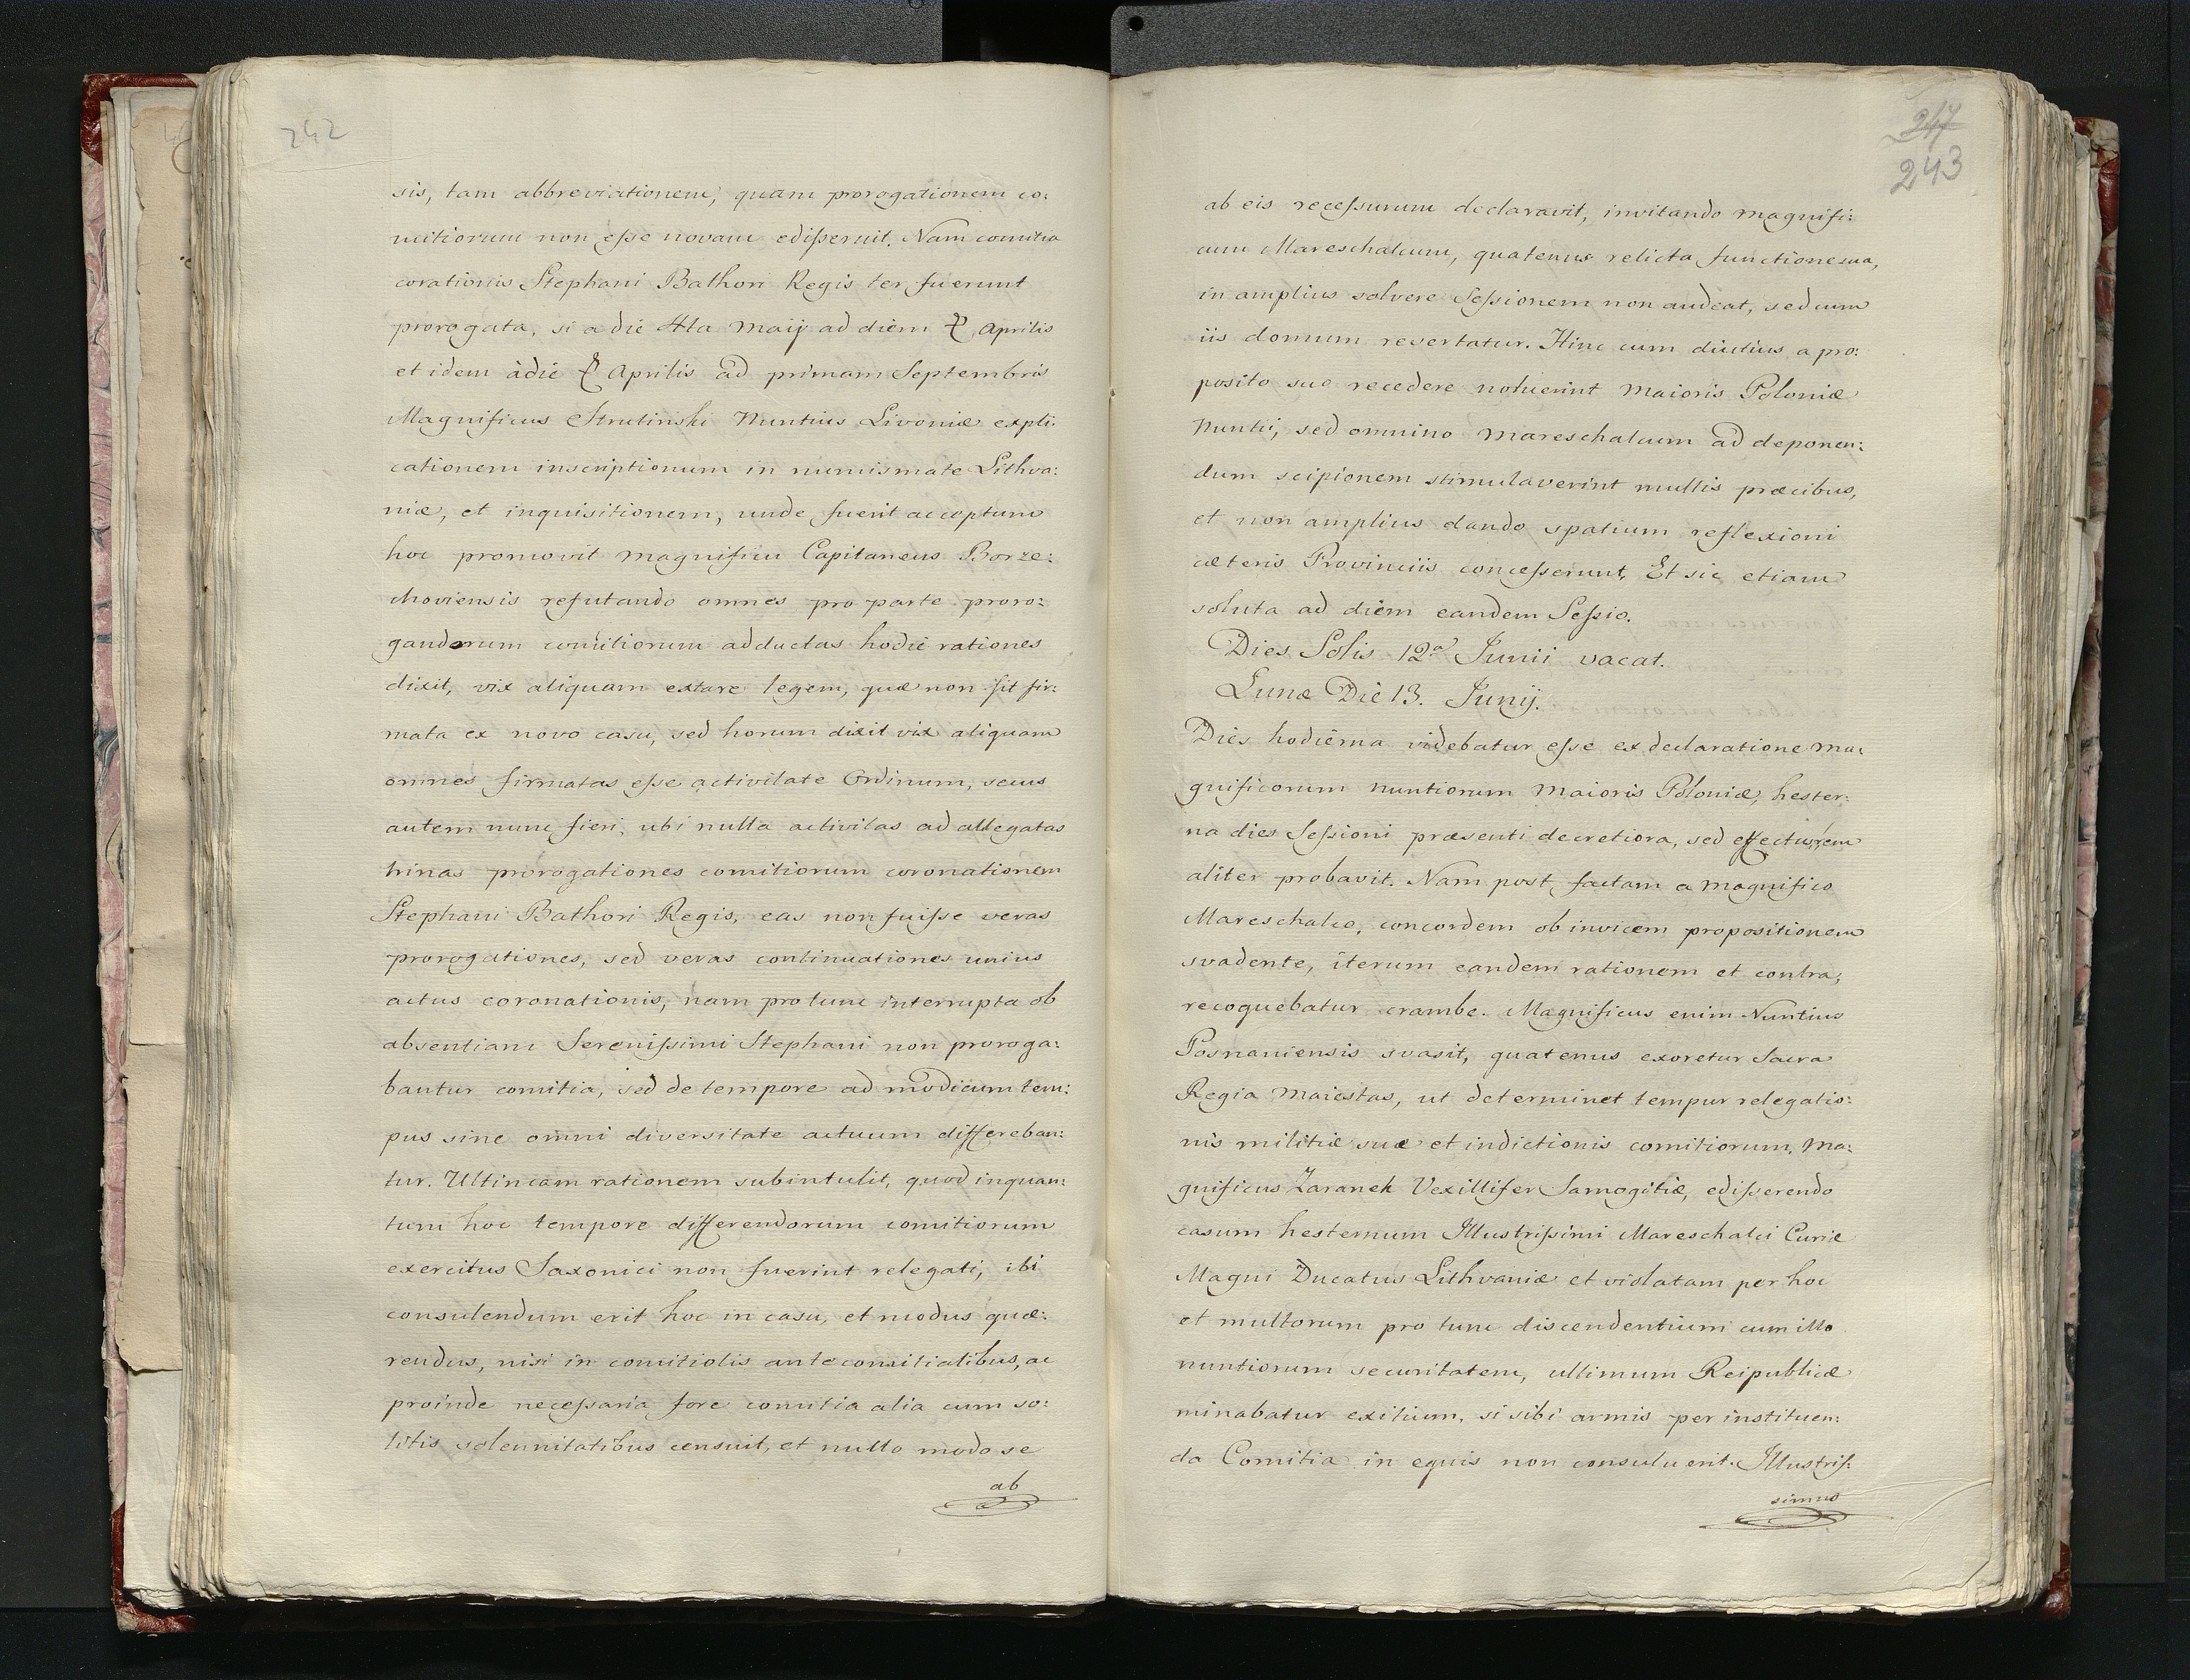 242
sis, tam abbreviationem, quam prorogationem co:
mitiorum non eſse novam ediſseruit. Nam comitia
corationis Stephani Bathori Regis ter fuerunt
prorogata, si a die 4ta Maij ad diem Aprilis
et idem àdie Aprilis ad primam Septembris
Magnificus Strutinski Nuntius Livoniæ expli:
cationem inscriptionum in numismate Lithva:
niæ, et inquisitionem, unde fuerit acceptum
hoc promovit Magnificu Capitaneus Borze:
choviensis refutando omnes pro parte proro:
gandorum comitiorum adductas hodie rationes
dixit, vix aliquam extare legem, quæ non sit fir:
mata ex novo casu, sed horum dixit vix aliquam
omnes firmatas eſse activitate Ordinum, secus
autem nunc fieri, ubi nulla activitas ad allegatas
hinas prorogationes comitiorum coronationem
Stephani Bathori Regis, eas non fuiſse veras
prorogationes, sed veras continuationes unius
actus coronationis, nam pro tunc interrupta ob
absentiam Sereniſsimi Stephani non proroga:
bantur comitia, sed de tempore ad modicum tem:
pus sine omni diversitate actuum differeban:
tur. Ultimam rationem subintulit, quod inquan:
tum hoc tempore differendorum comitiorum
exercitus Saxonici non fuerint relegati, ibi
consulendum erit hoc in casu, et modus quæ:
rendus, nisi in comitiolis ante comitialibus, ac
proinde neceſsaria fore comitia alia cum so:
litis solennitatibus censuit, et nullo modo se
ab
247
243
ab eis receſsurum declaravit, invitando magnifi:
cum Mareschalcum, quatenus relicta functione sua,
in amplius solvere Seſsionem non audeat, sed cum
iis domum revertatur. Hinc cum diutius a pro:
posito suo recedere noluerint Maioris Poloniæ
Nuntii, sed omnino Mareschalcum ad deponen:
dum scipionem stimulaverint multis præcibus,
et non amplius dando spatium reflexioni
cæteris Provinciis conceſserunt, Et sic etiam
soluta ad diem eandem Seſsio.
Dies Solis 12ª Junii vacat.
Lunæ Die 13. Junij.
Dies hodierna videbatur eſse ex declaratione ma:
gnificorum nuntiorum Maioris Poloniæ, hester:
na dies Seſsioni præsenti decretiora, sed effectus rem
aliter probavit. Nam post factam a magnifico
Mareschalco, concordem ob invicem propositionem
svadente, iterum eandem rationem et contra,
recoquebatur crambe. Magnificus enim Nuntius
Posnaniensis svasit, quatenus exoretur Sacra
Regia Maiestas, ut determinet tempur relegatio:
nis militiæ suæ et indictionis comitiorum, Ma:
gnificus Zaranek Vexillifer Samogitiæ, ediſserendo
casum hesternum Illustriſsimi Mareschalci Curiæ
Magni Ducatus Lithvaniæ et violatam per hoc
et multorum pro tunc discendentium cum illo
nuntiorum securitatem, ultimum Reipublicæ
minabatur exitium, si sibi armis per instituen:
da Comitia in equis non consuluerit. Illustriſ:
simus